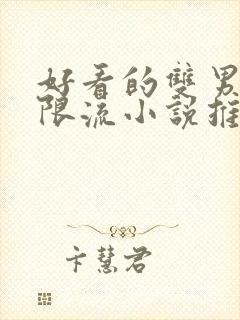 好看的雙男
限流小說推
卞慧君